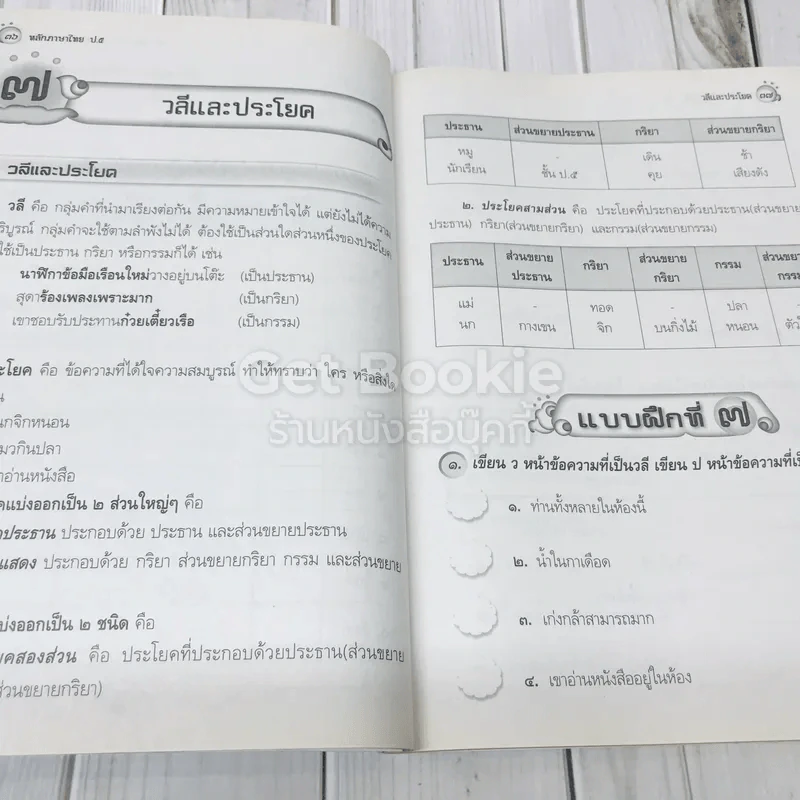 ๓๖ หลักภาษาไทย ป.๕
๗
วลีและประโยค
วลีและประโยค
วลี คือ กลุ่มคำที่นำมาเรียงต่อกัน มีความหมายเข้าใจได้ แต่ยังไม่ได้ความ
ริบูรณ์ กลุ่มคำจะใช้ตามลำพังไม่ได้ ต้องใช้เป็นส่วนใดส่วนหนึ่งของประโยค
ใช้เป็นประธาน กริยา หรือกรรมก็ได้ เช่น
นาฬิกาข้อมือเรือนใหม่วางอยู่บนโต๊ะ (เป็นประธาน)
สุดาร้องเพลงเพราะมาก (เป็นกริยา)
เขาชอบรับประทานก๋วยเตี๋ยวเรือ (เป็นกรรม)
ะโยค คือ ข้อความที่ได้ใจความสมบูรณ์ ทำให้ทราบว่า ใคร หรือสิ่งใด
น
นกจิกหนอน
มวกินปลา
าอ่านหนังสือ
คแบ่งออกเป็น ๒ ส่วนใหญ่ๆ คือ
ประธาน ประกอบด้วย ประธาน และส่วนขยายประธาน
แสดง ประกอบด้วย กริยา ส่วนขยายกริยา กรรม และส่วนขยาย
บ่งออกเป็น ๒ ชนิด คือ
ยคสองส่วน คือ ประโยคที่ประกอบด้วยประธาน(ส่วนขยาย
ส่วนขยายกริยา)
วลีและประโยค ๓๗
ประธาน ส่วนขยายประธาน กริยา ส่วนขยายกริยา
หมู - เดิน ช้า
นักเรียน ชั้น ป.๕ คุย เสียงดัง
๒. ประโยคสามส่วน คือ ประโยคที่ประกอบด้วยประธาน(ส่วนขยาย
ประธาน) กริยา(ส่วนขยายกริยา) และกรรม(ส่วนขยายกรรม)
ประธาน ส่วนขยายประธาน กริยา ส่วนขยายกริยา กรรม ส่วนขยายกรรม
แม่ - ทอด - ปลา -
นก กางเขน จิก บนกิ่งไม้ หนอน
แบบฝึกที่ ๗
๑. เขียน ว หน้าข้อความที่เป็นวลี เขียน ป หน้าข้อความที่เป็
๑. ท่านทั้งหลายในห้องนี้
๒. น้ำในกาเดือด
๓. เก่งกล้าสามารถมาก
๔. เขาอ่านหนังสืออยู่ในห้อง
Get Bookie
ร้านหนังสือบุ๊คกี้